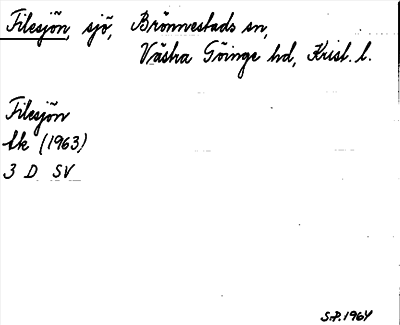 Filesjön, sjö, Brönnestads sn,
Västra Göinge hd, Krist. l.
Filesjön
Ek (1963)
3 D SV
S.P. 1964